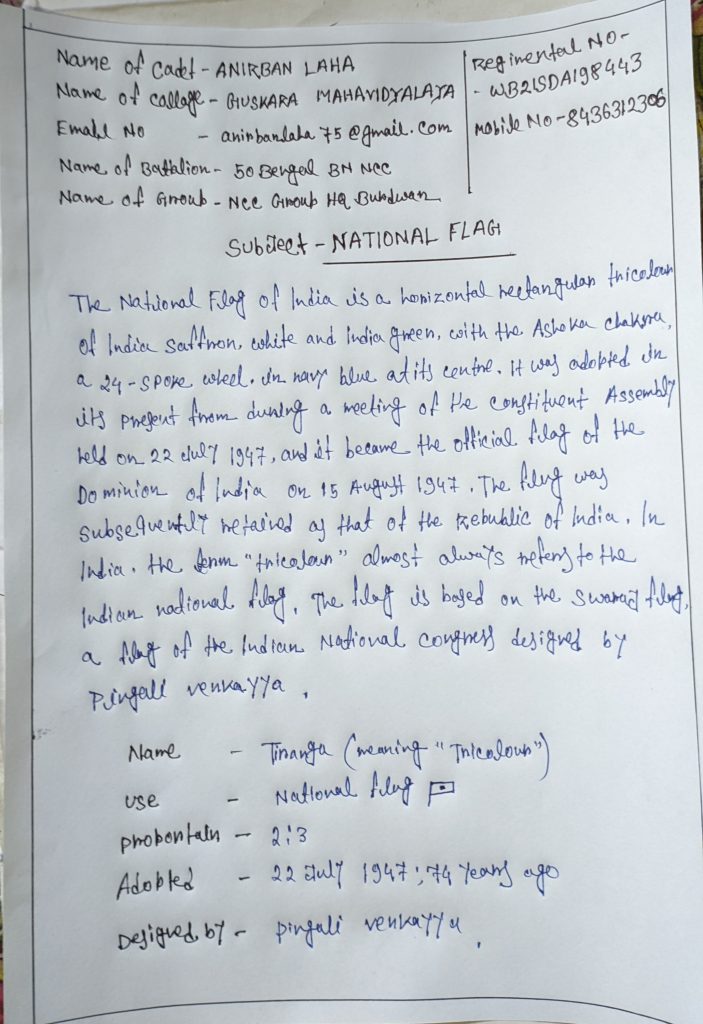 Name of Cadet - ANIRBAN LAHA
Name of Collage - GUSKARA MAHAVIDYALAYA
Email No - anirbanlaha75@gmail.com
Name of Battalion - 50 Bengal BN NCC
Name of Group - NCC Group HQ Burdwan
Regimental NO-
- WB21SDA198443
Mobile No - 8436312306
Subject - NATIONAL FLAG
The National Flag of India is a horizontal rectangular tricolour
of India saffron, white and India green, with the Ashoka chakra,
a 24-spoke wheel. in navy blue at its centre. it was adopted in
its present from during a meeting of the constituent Assembly
held on 22 July 1947, and it became the official flag of the
Dominion of India on 15 August 1947. The flag was
subsequently retained as that of the Republic of India. In
India. the term "tricolour" almost always refers to the
Indian national flag. The flag is based on the swaraj flag,
a flag of the Indian National congress designed by
Pingali venkayya.
Name - Tiranga (meaning "Tricolour")
use - National flag
probontain - 2:3
Adopted - 22 July 1947; 74 years ago
Designed by - pingali venkayya.